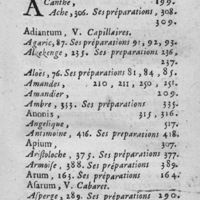 Acanthe, 199.
Ache, 306. Ses préparations, 308.
309.
Adiantum, V. Capillaires.
Agaric, 87. Ses préparations 91, 92, 93.
Alkekenge, 235. Ses préparations 236,
237.
Aloës, 76. Ses préparations 81, 84, 85.
Amandes, 210, 211, 250, 251.
Amandier, 209.
Ambre, 353. Ses préparations 335.
Anonis, 315, 316.
Angelique, 517.
Antimoine, 416. Ses preparations 418.
Apium, 307.
Aristoloche, 375. Ses préparations 377.
Armoise, 388. Ses préparations 389.
Arum, 163. Ses préparations 164.
Asarum, V. Cabaret.
Asperge, 289. Ses préparations 290.